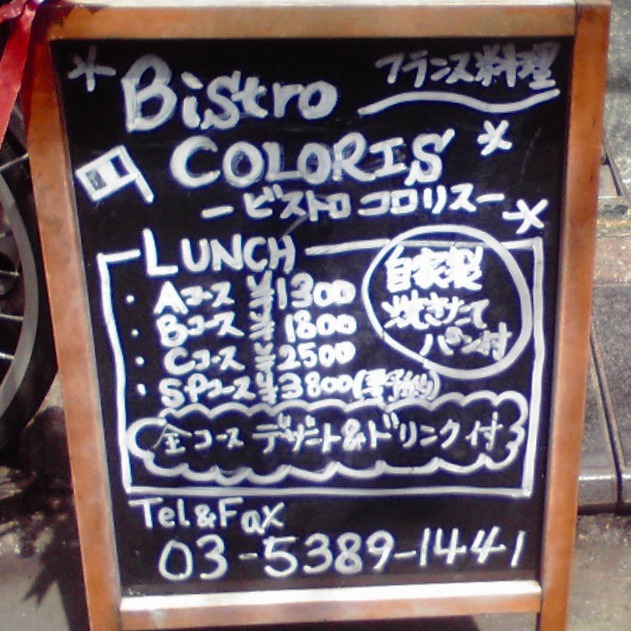 Bistro
フランス料理
COLORIS
ービストロ コロリスー
LUNCH
・Aコース ¥1300
・Bコース ¥1800
・Cコース ¥2500
・SPコース ¥3800(要予約)
自家製
焼きたて
パン付
全コース デザート&ドリンク付
Tel&Fax
03-5389-1441